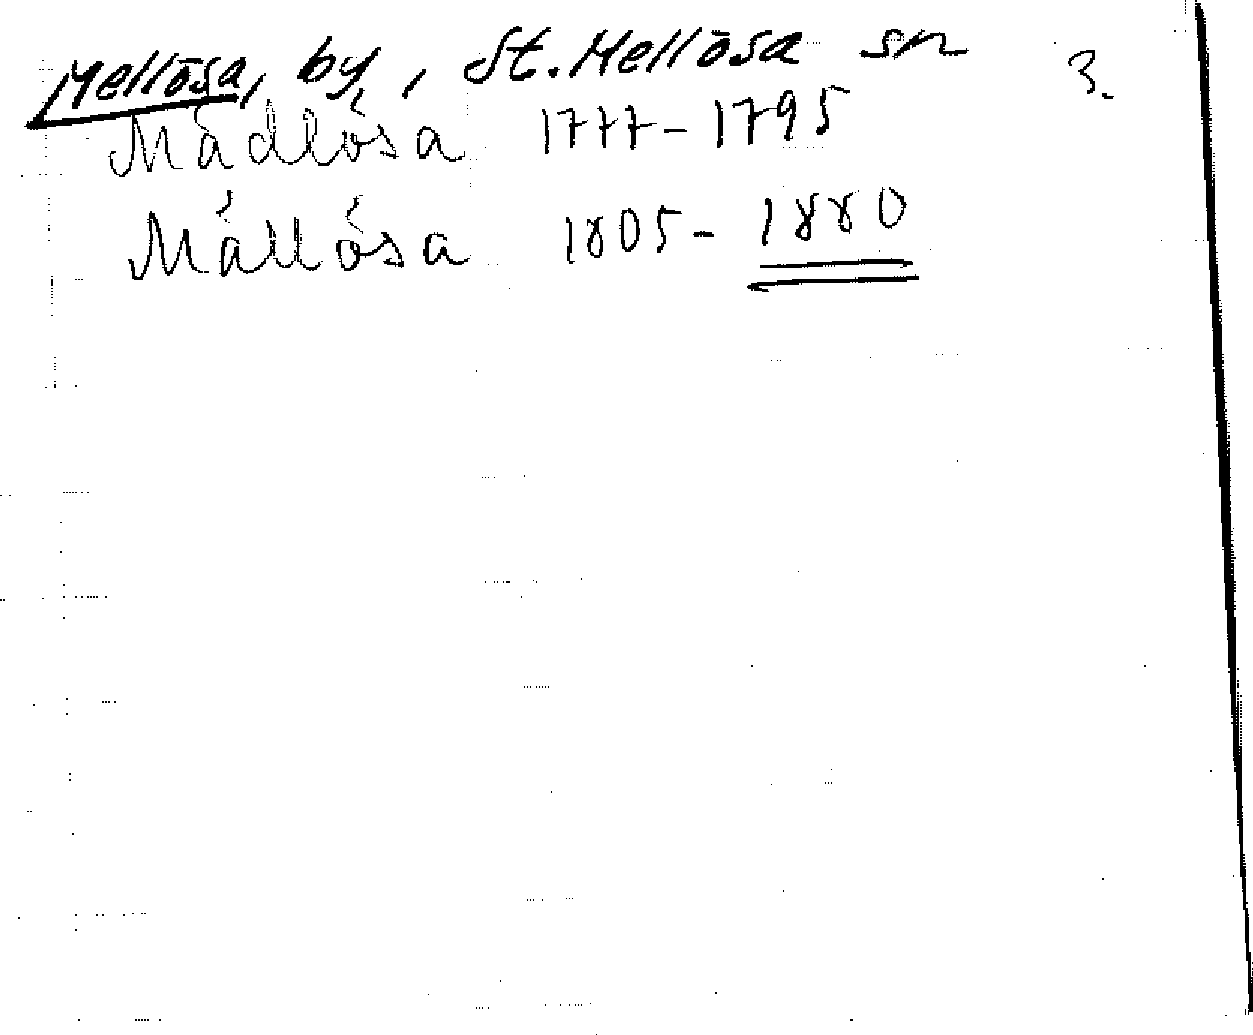 Mellösa, by, St. Mellösa sn 3.
Mádlósa 1777-1795
Mállósa 1805-1880